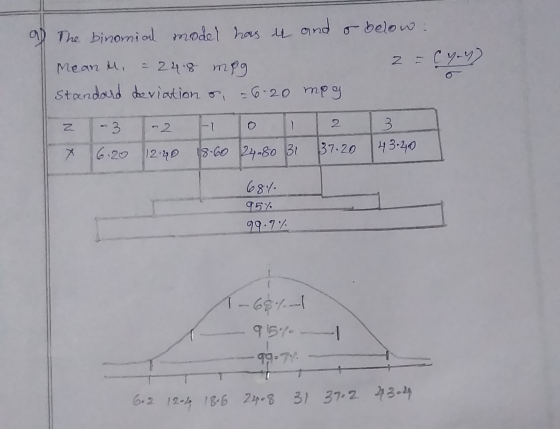 a) The binomial model has μ and σ below:
Mean μ, = 24.8 mpg
z = (y-y)/σ
Standard deviation σ, = 6.20 mpg
z -3 -2 -1 0 1 2 3
x 6.20 12.40 18.60 24.80 31 37.20 43.40
68%
95%
99.7%
68%
95%
99.7%
6.2 12.4 18.6 24.8 31 37.2 43.4